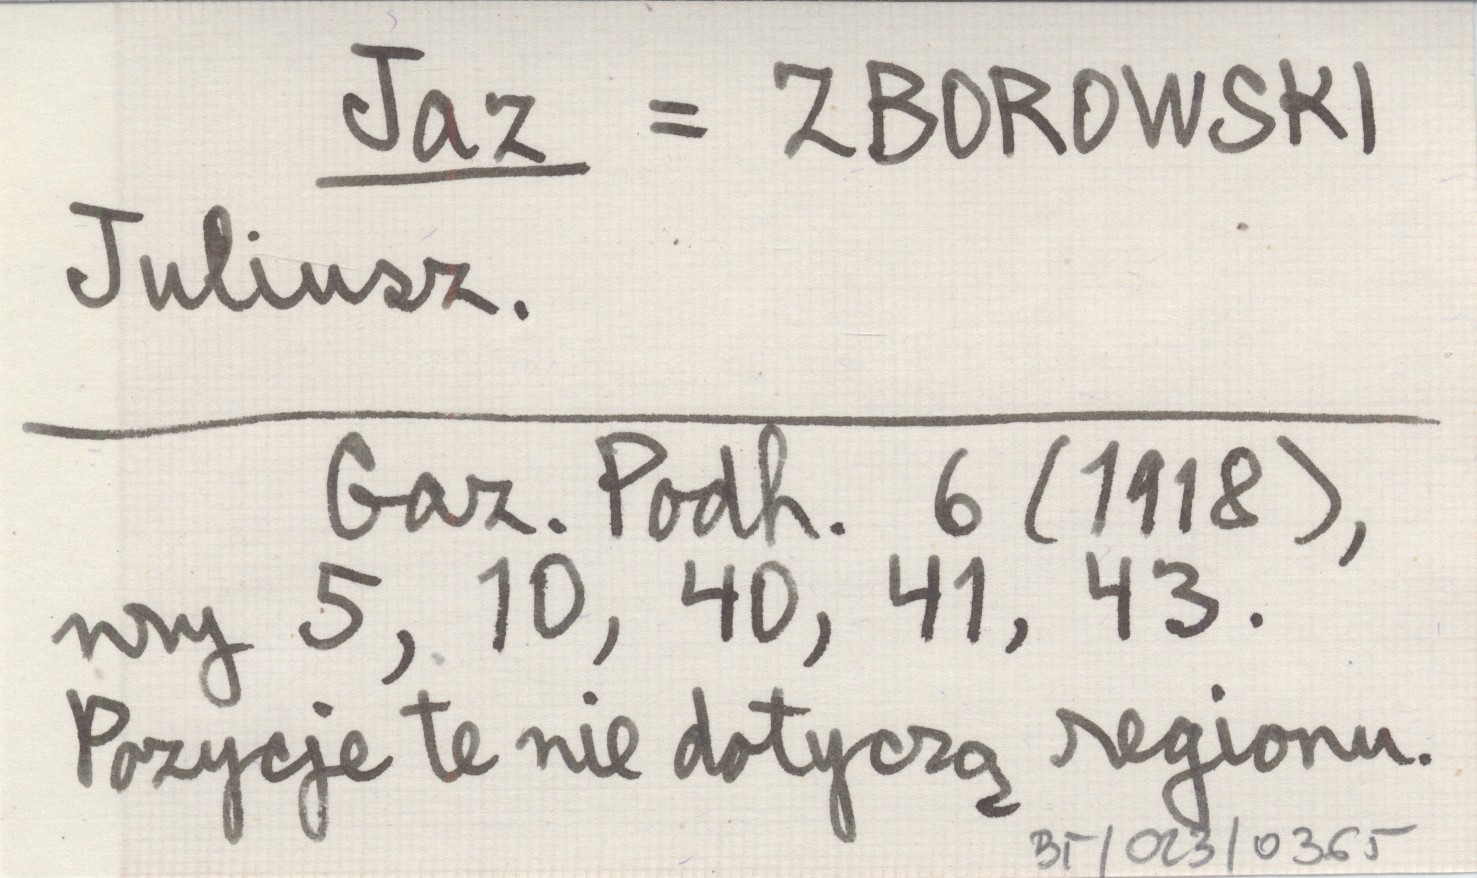 Jaz = ZBOROWSKI
Juliusz.
Gaz. Podh. 6 (1918),
nry 5, 10, 40, 41, 43.
Pozycje te nie dotyczą regionu.
BT/023/0365